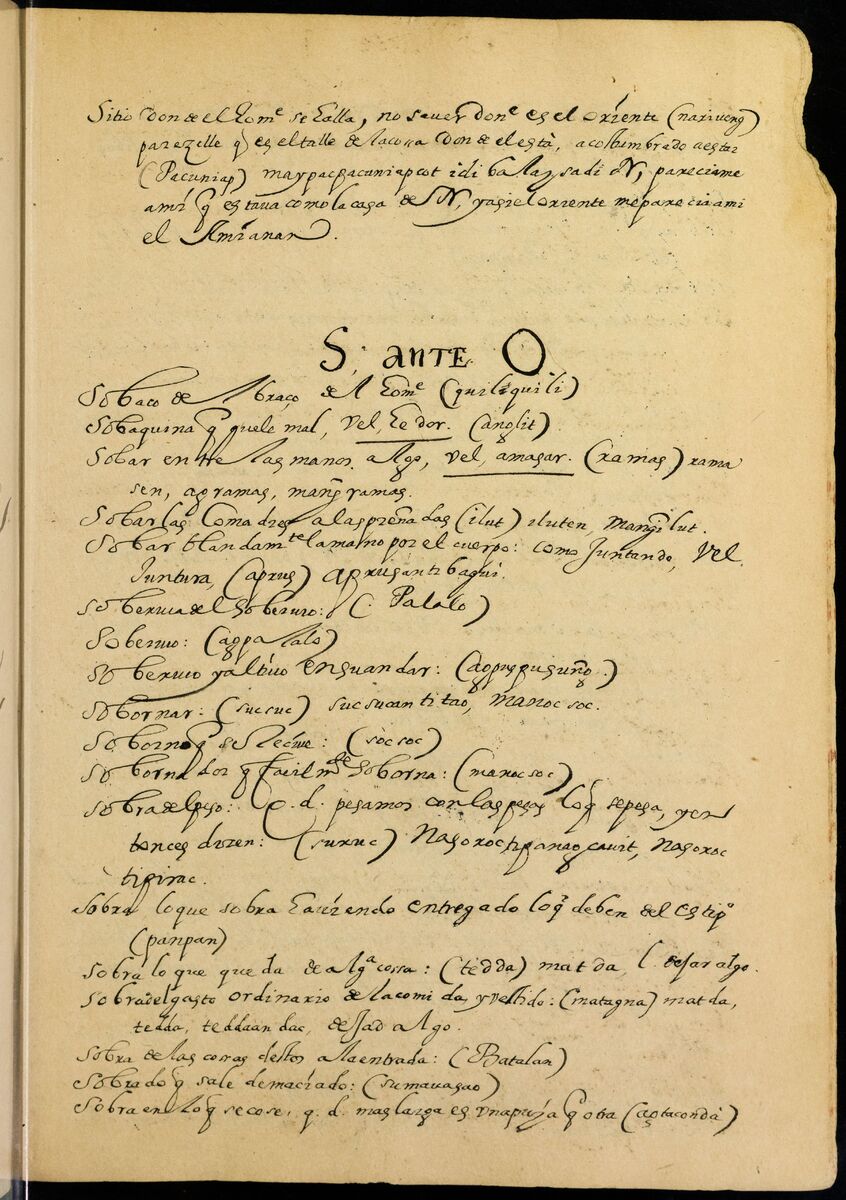 Sitio donde el home se halla, no saver done es el oriente (nariveng)
parezelle q̃ es el talle de la cossa donde el està, acostumbrado a estar
(Pacuniap) maypacpacuniapcot idi balaysadi N, pareciame
ami q̃ estava como la casa de N, y asi el oriente me parecia ami
el Amianan.
S, ANTE O
Sobaco de el braço del home (quiliquili)
Sobaquina q̃ guele mal, vel, hedor. (anglit)
Sobar entre las manos algo, vel, amasar. (ramas) rama
sen, agramas, mang̃ramas.
Sobar las comadres a las preñadas (ilut) iluten, mang̃ilut.
Sobar blandamte la mano por el cuerpo: como juntando, vel
juntura, (aprus) aprusanti bagui.
Sobervia del sobervio: (Palalo)
Sobervio: (agpalalo)
Sobervio y altivo en su andar: (agpuspusuñg)
Sobornar: (sucsuc) sucsucanti tao, manocsoc.
Soborno q̃ se recive: (socsoc)
Sobornador q̃ facilmte soborna: (manocsoc)
Sobra del peso: q. d. pesamos con las pesas lo q̃ se pesa, y en
tonces dizen: (suruc) Nasoroc ti panagcavit, Nasoroc
ti pirac.
Sobra lo que sobra haviendo entregado lo q̃ deben del estipo
(panpan)
Sobra lo que queda de alga cossa: (tedda) matda, l. dejar algo.
Sobra del gasto ordinario de la comida, y vestido: (matagna) matda,
tedda, teddaan dac, dejad algo.
Sobra de las cossas destos a la entrada: (Batalan)
Sobrado q̃ sale demaciado: (sumavasao)
Sobra en lo q̃ se cose, q. d. mas larga es una puja q̃ otra (agtacondà)